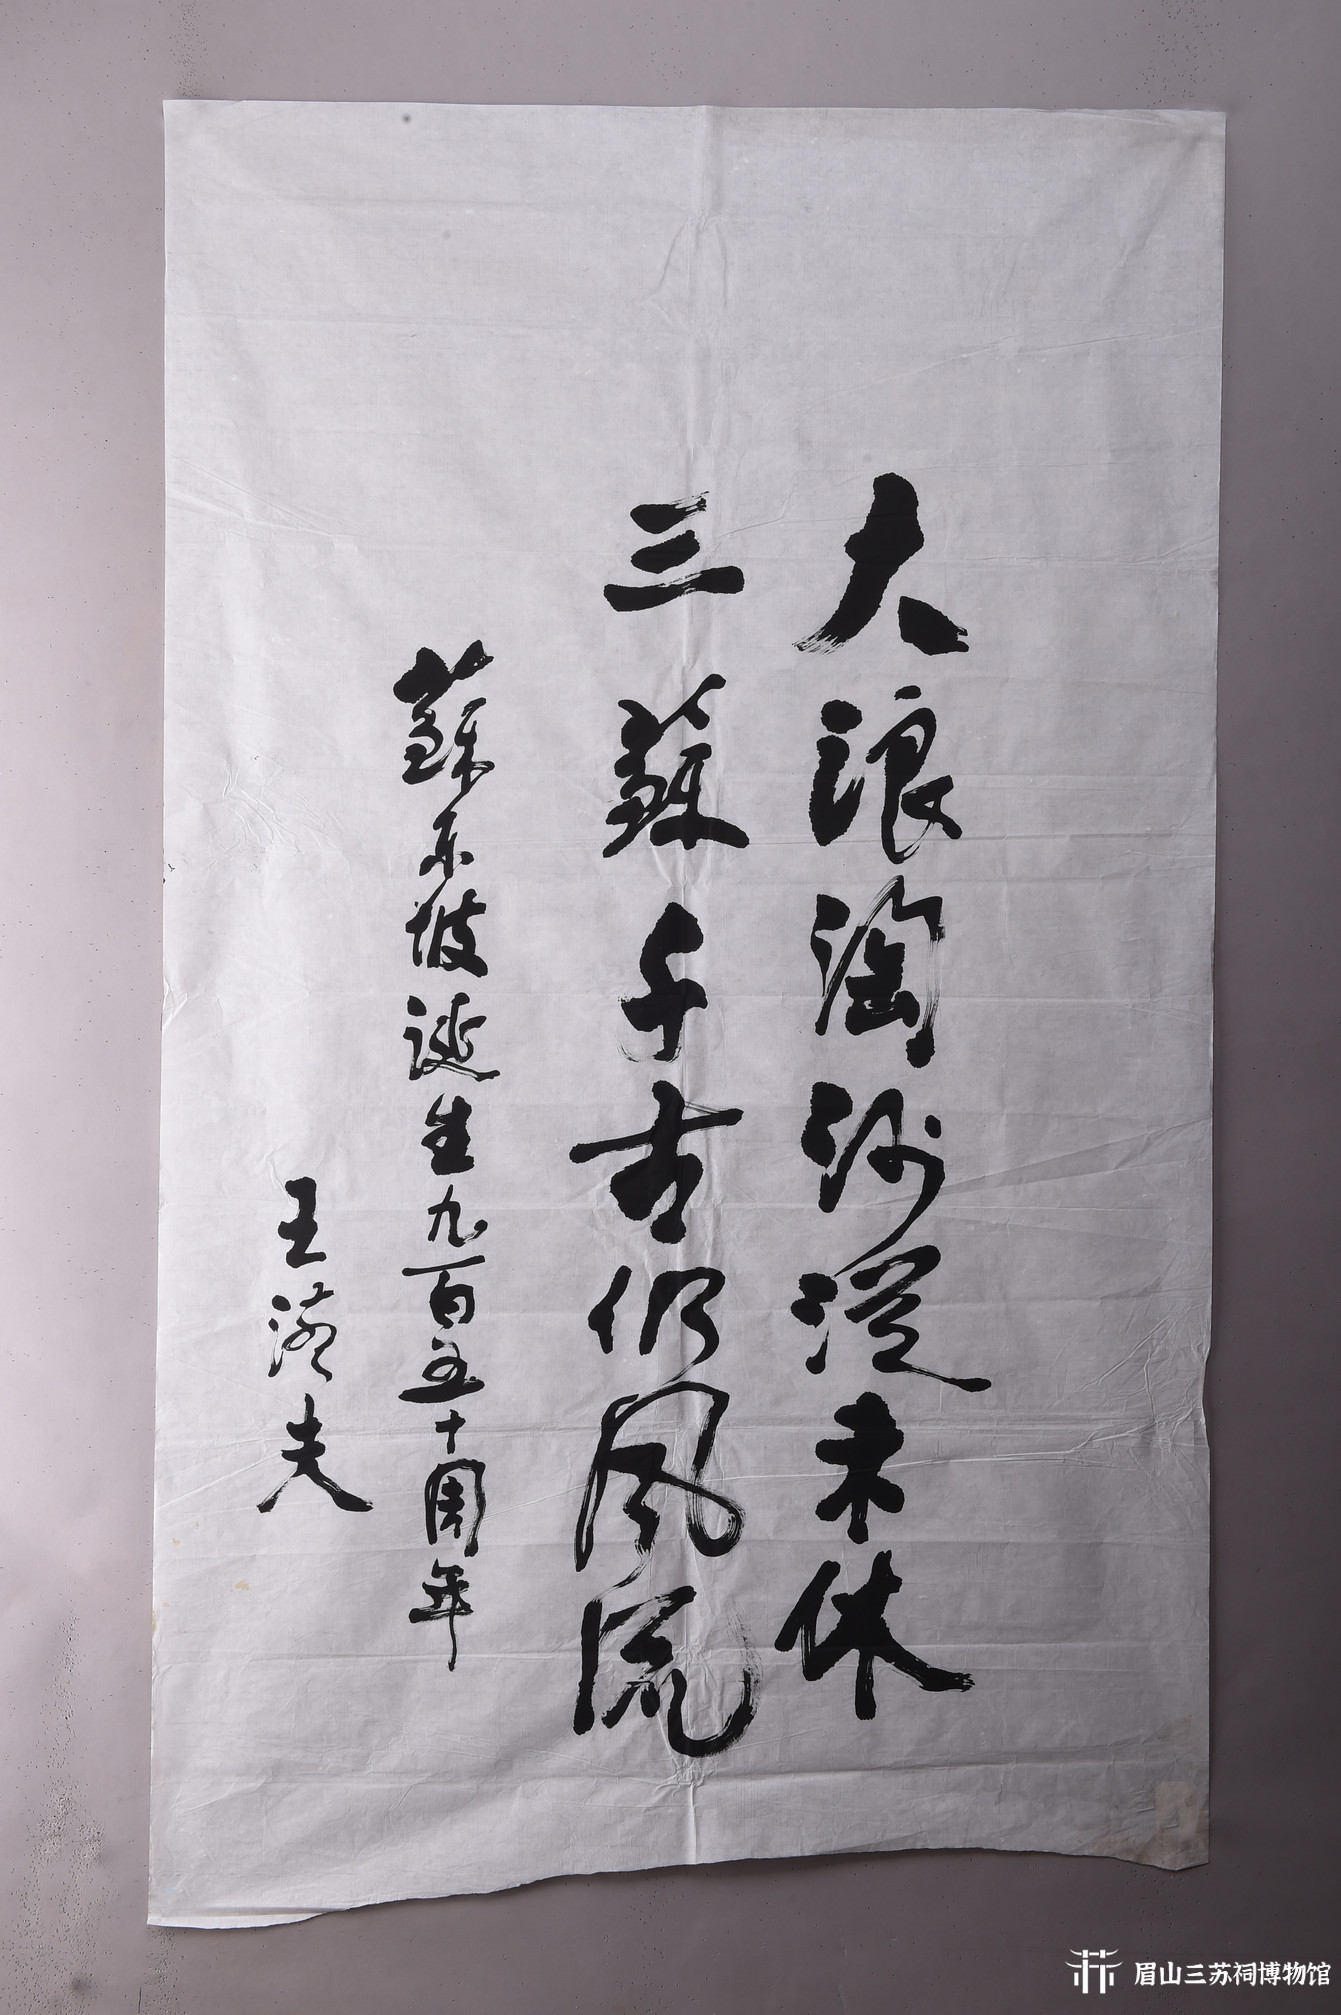 大浪淘沙從未休
三蘇千古仍風流
蘇東坡誕生九百五十周年
王夫
眉山三苏祠博物馆